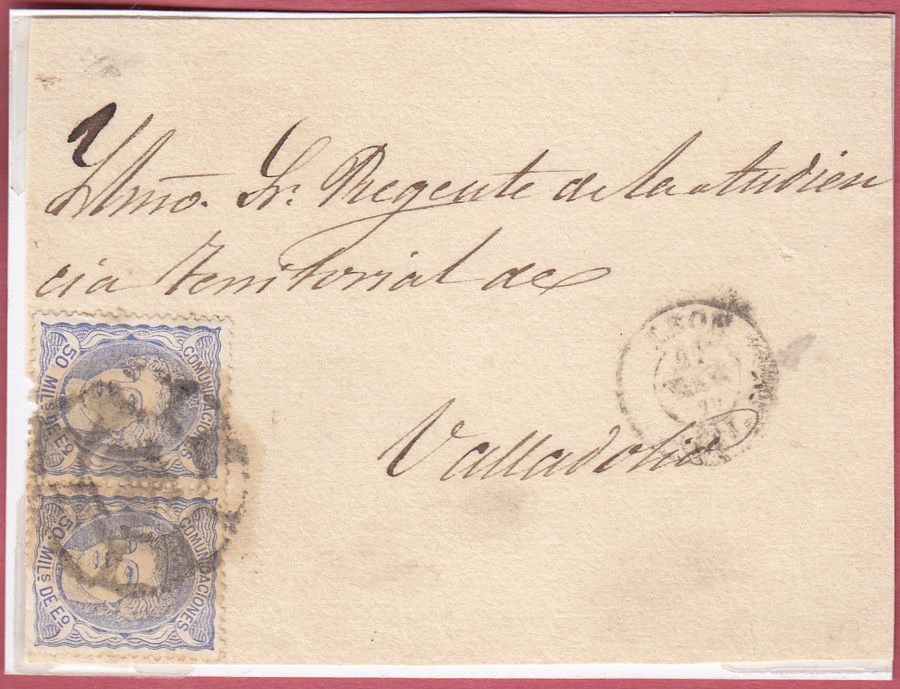 Yllmo. Sr. Regente de la Audien
cia Territorial de
Valladolid
LEON
COMUNICACIONES
50 MILS. DE EO.
COMUNICACIONES
50 MILS. DE EO.